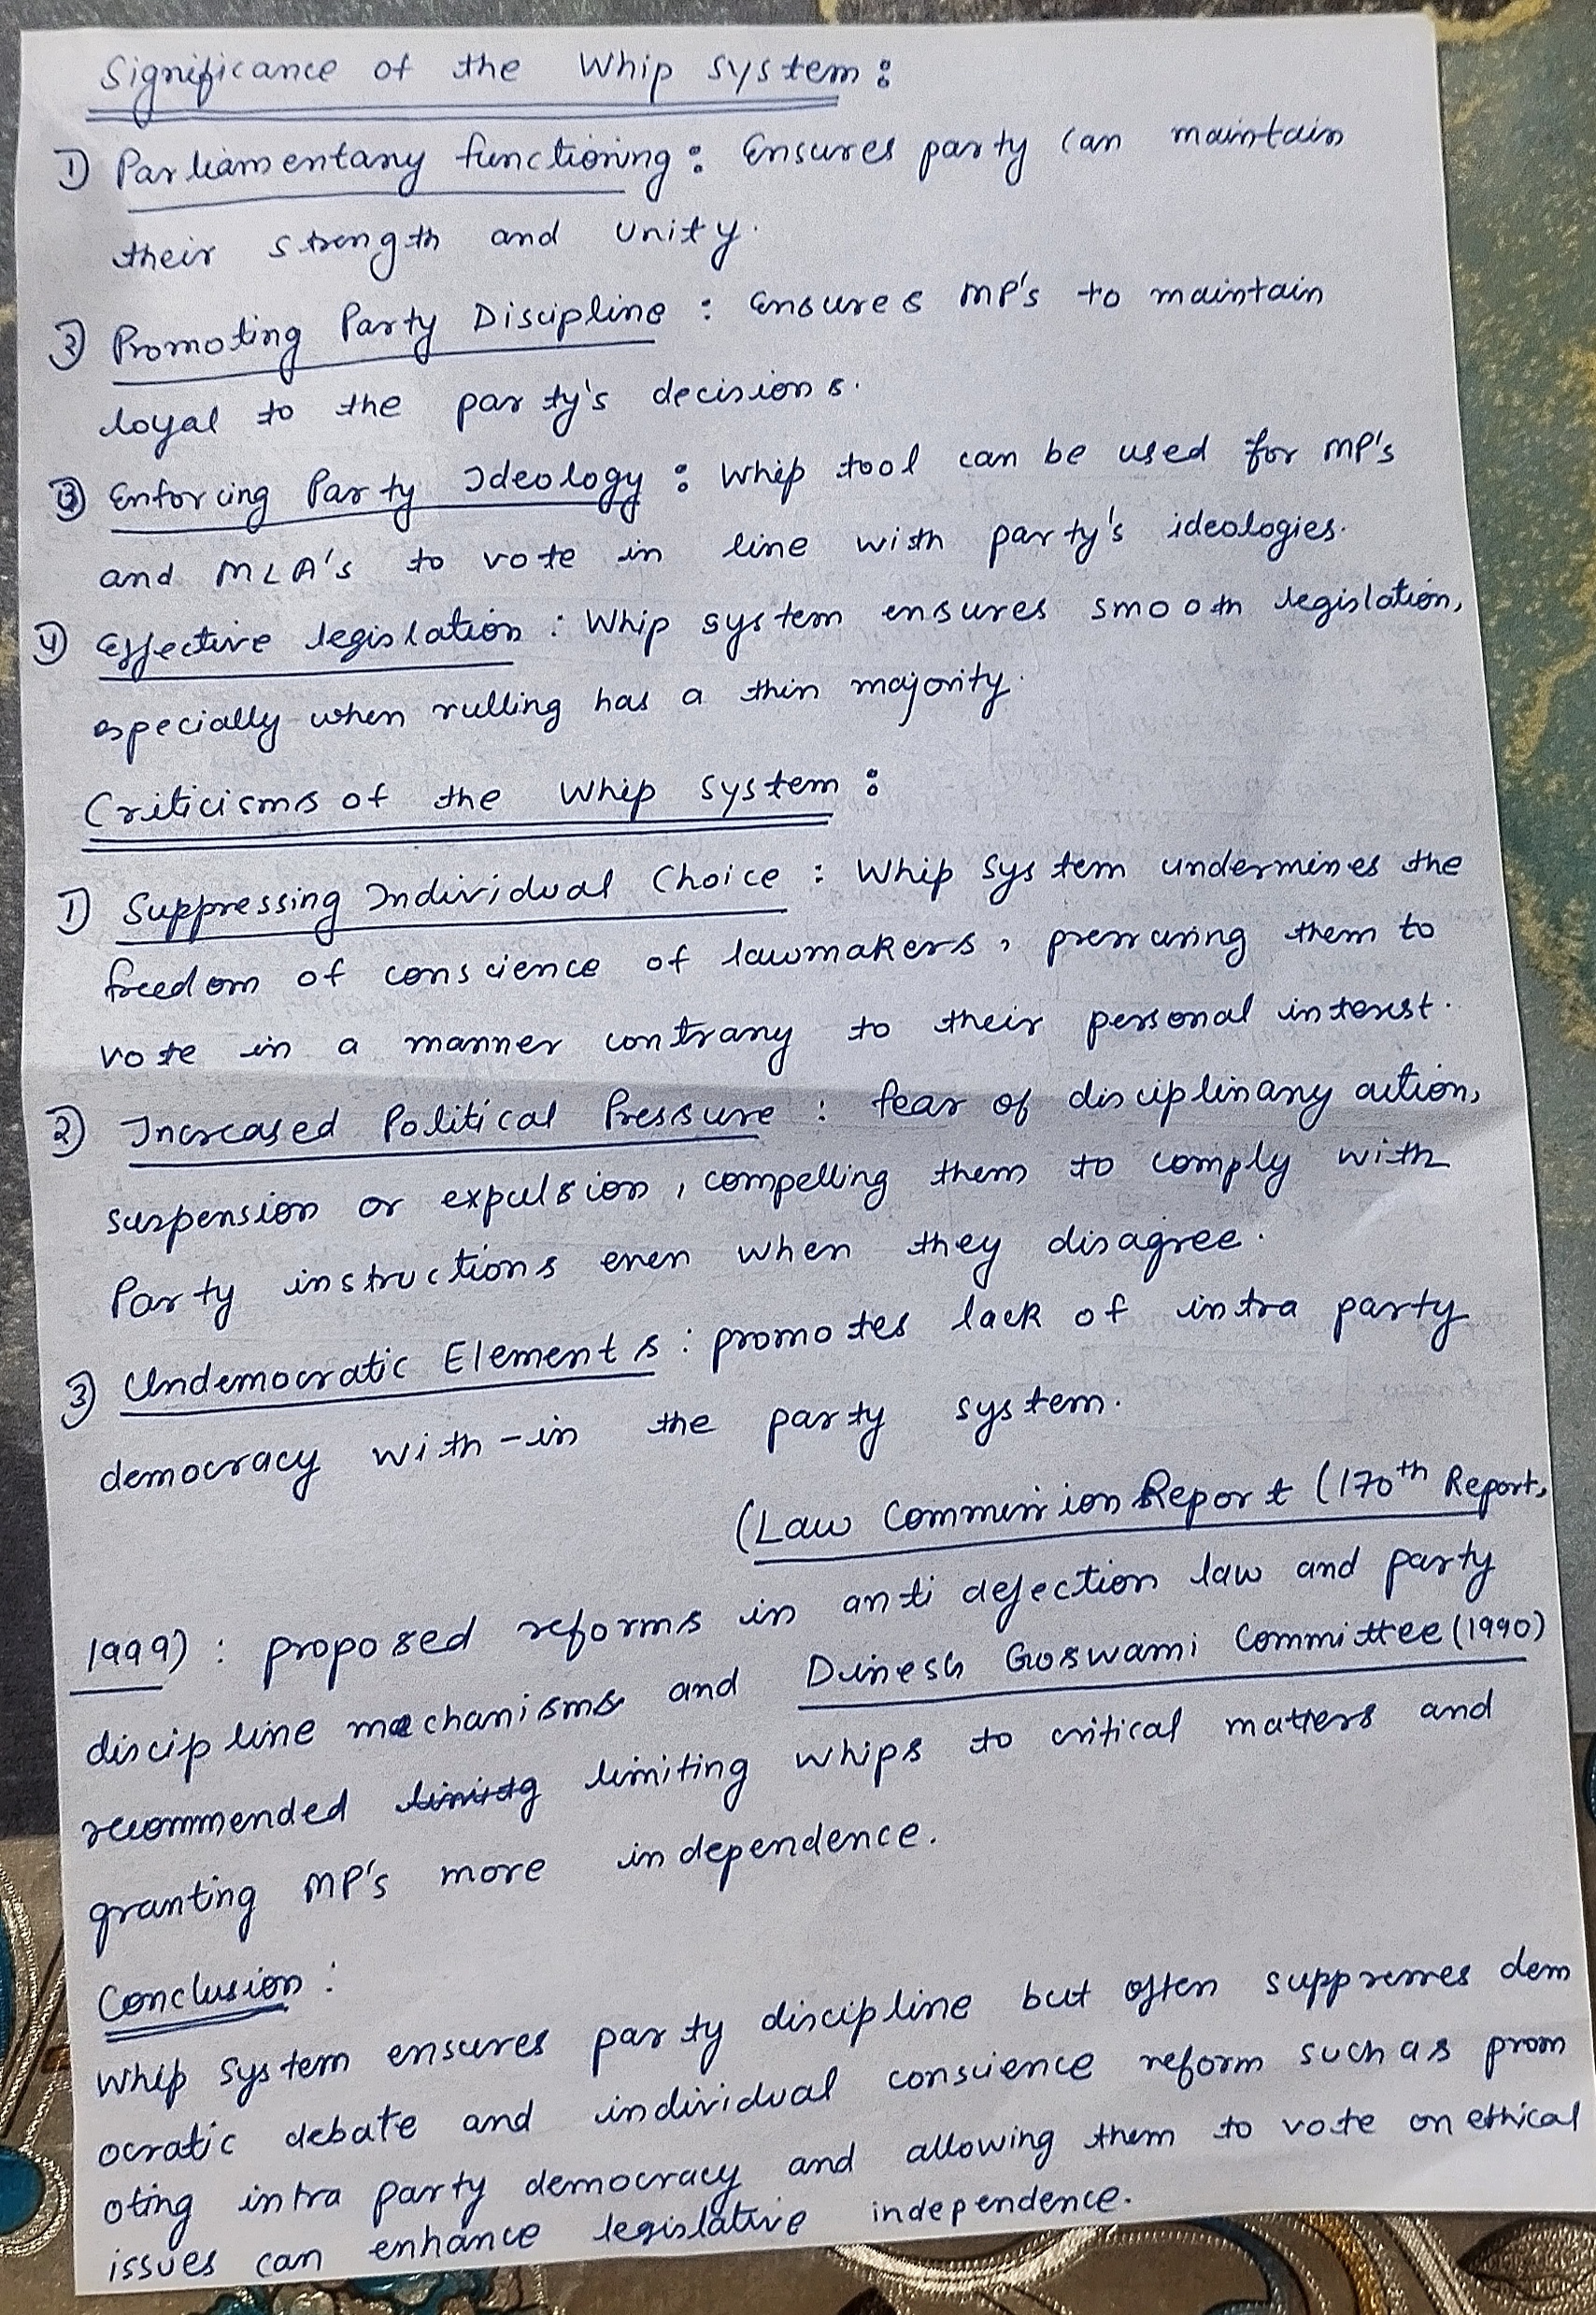 Significance of the Whip System:
1) Parliamentary functioning: Ensures party can maintain
their strength and unity.
2) Promoting Party Discipline: Ensures MP's to maintain
loyal to the party's decisions.
3) Enforcing Party Ideology: Whip tool can be used for MP's
and MLA's to vote in line with party's ideologies.
4) Effective legislation: Whip system ensures smooth legislation,
especially when rulling has a thin majority.
Criticisms of the Whip System:
1) Suppressing Individual Choice: Whip System undermines the
freedom of conscience of lawmakers, pressuring them to
vote in a manner contrany to their personal interest.
2) Increased Political Pressure: fear of disciplinany action,
suspension or expulsion, compelling them to comply with
Party instructions even when they disagree.
3) Undemocratic Elements: promotes lack of intra party
democracy with-in the party system.
(Law Commission Report (170th Report,
1999): proposed reforms in anti defection law and party
discipline mechanisms and Dinesh Goswami Committee (1990)
recommended limiting whips to critical matters and
granting MP's more independence.
Conclusion:
Whip System ensures party discipline but often suppresses dem
ocratic debate and individual conscience reform such as prom
oting intra party democracy and allowing them to vote on ethical
issues can enhance legislative independence.